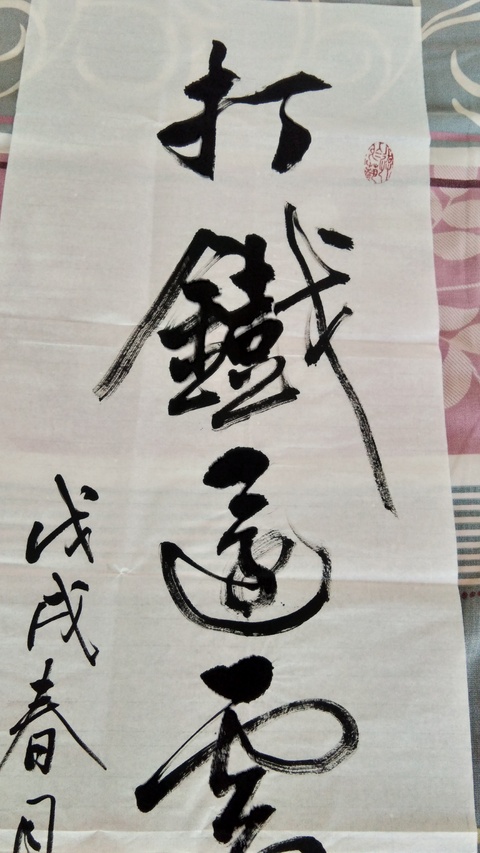 打鐵還需
戊戌春月